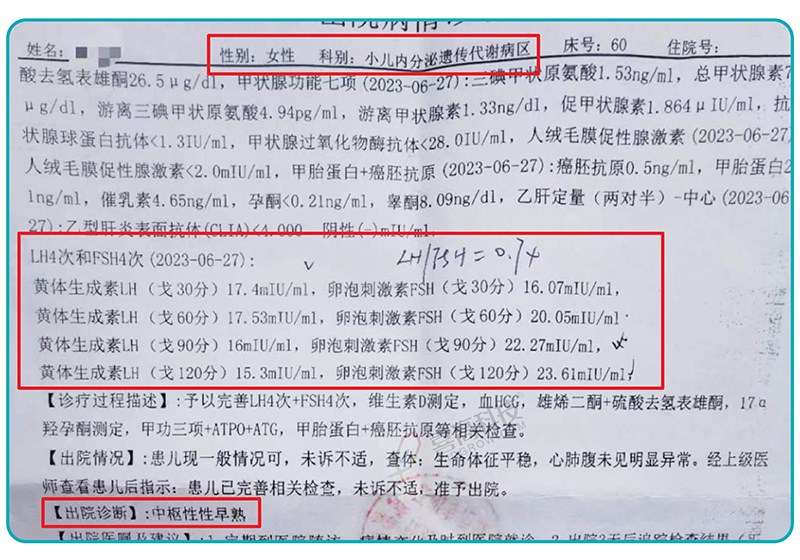 出院病情
姓名: 性别: 女性 科别: 小儿内分泌遗传代谢病区 床号: 60 住院号:
酸去氢表雄酮26.5μg/dl, 甲状腺功能七项(2023-06-27):三碘甲状原氨酸1.53ng/ml, 总甲状腺素7
μg/dl, 游离三碘甲状原氨酸4.94pg/ml, 游离甲状腺素1.33ng/dl, 促甲状腺素1.864μIU/ml, 抗
状腺球蛋白抗体<1.3IU/ml, 甲状腺过氧化物酶抗体<28.0IU/ml, 人绒毛膜促性腺激素(2023-06-27)
人绒毛膜促性腺激素<2.0mIU/ml, 甲胎蛋白+癌胚抗原(2023-06-27):癌胚抗原0.5ng/ml, 甲胎蛋白2
1ng/ml, 催乳素4.65ng/ml, 孕酮<0.21ng/ml, 睾酮8.09ng/dl, 乙肝定量(两对半)-中心(2023-06
27):乙型肝炎表面抗体(CLIA)<4.000 阴性(-)mIU/ml.
LH4次和FSH4次(2023-06-27): LH/FSH=0.74
黄体生成素LH(戈30分)17.4mIU/ml, 卵泡刺激素FSH(戈30分)16.07mIU/ml,
黄体生成素LH(戈60分)17.53mIU/ml, 卵泡刺激素FSH(戈60分)20.05mIU/ml
黄体生成素LH(戈90分)16mIU/ml, 卵泡刺激素FSH(戈90分)22.27mIU/ml,
黄体生成素LH(戈120分)15.3mIU/ml, 卵泡刺激素FSH(戈120分)23.61mIU/ml,
【诊疗过程描述】:予以完善LH4次+FSH4次, 维生素D测定, 血HCG, 雄烯二酮+硫酸去氢表雄酮, 17α
羟孕酮测定, 甲功三项+ATPO+ATG, 甲胎蛋白+癌胚抗原等相关检查。
【出院情况】:患儿现一般情况可, 未诉不适, 查体: 生命体征平稳, 心肺腹未见明显异常。经上级医
师查看患儿后指示: 患儿已完善相关检查, 未诉不适, 准予出院。
【出院诊断】:中枢性性早熟
【出院医嘱及建议】:1.定期到医院随访, 病情变化及时到医院就诊。2.出院3天后追踪检查结果